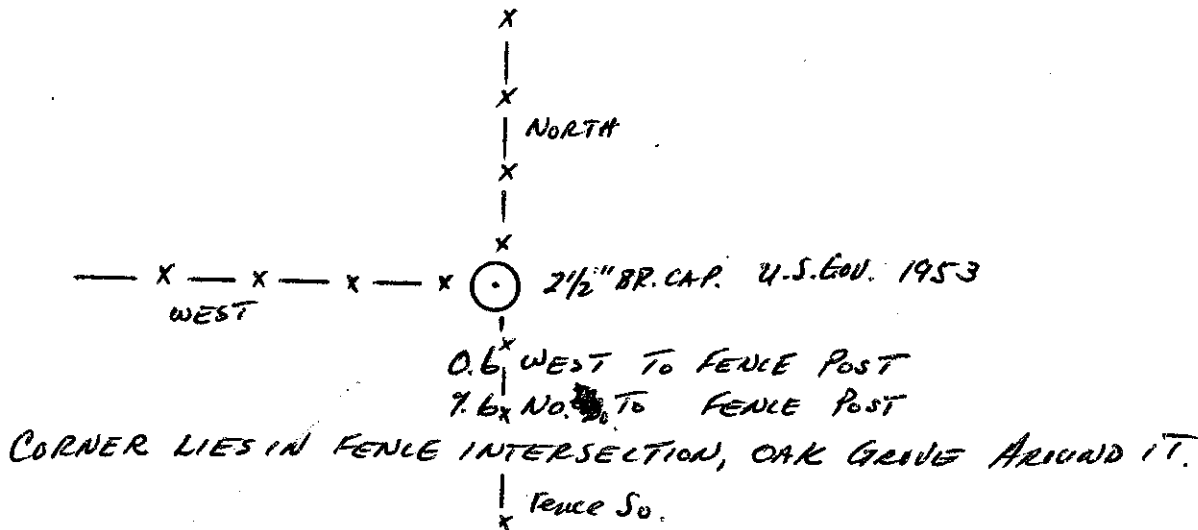 NORTH
2½" BR. CAP. U.S. GOV. 1953
WEST
0.6 WEST TO FENCE POST
NO. TO FENCE POST
CORNER LIES IN FENCE INTERSECTION, OAK GROVE AROUND IT.
Fence So.